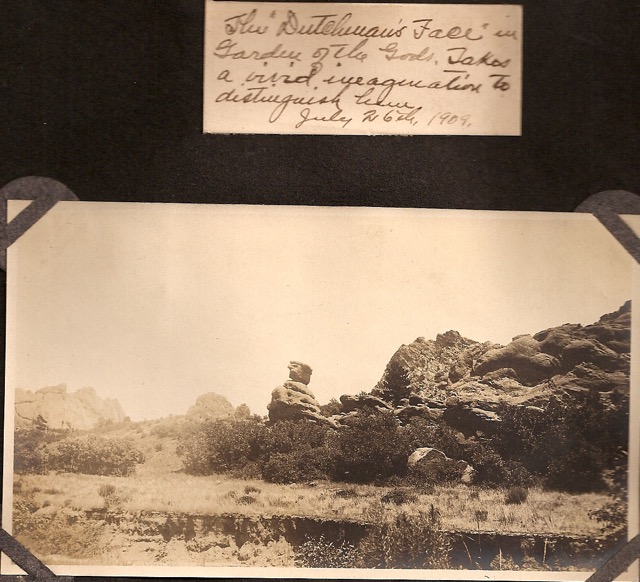 The "Dutchman's Face" in
Garden of the Gods. Takes
a vivid imagination to
distinguish him.
July 26th, 1909.